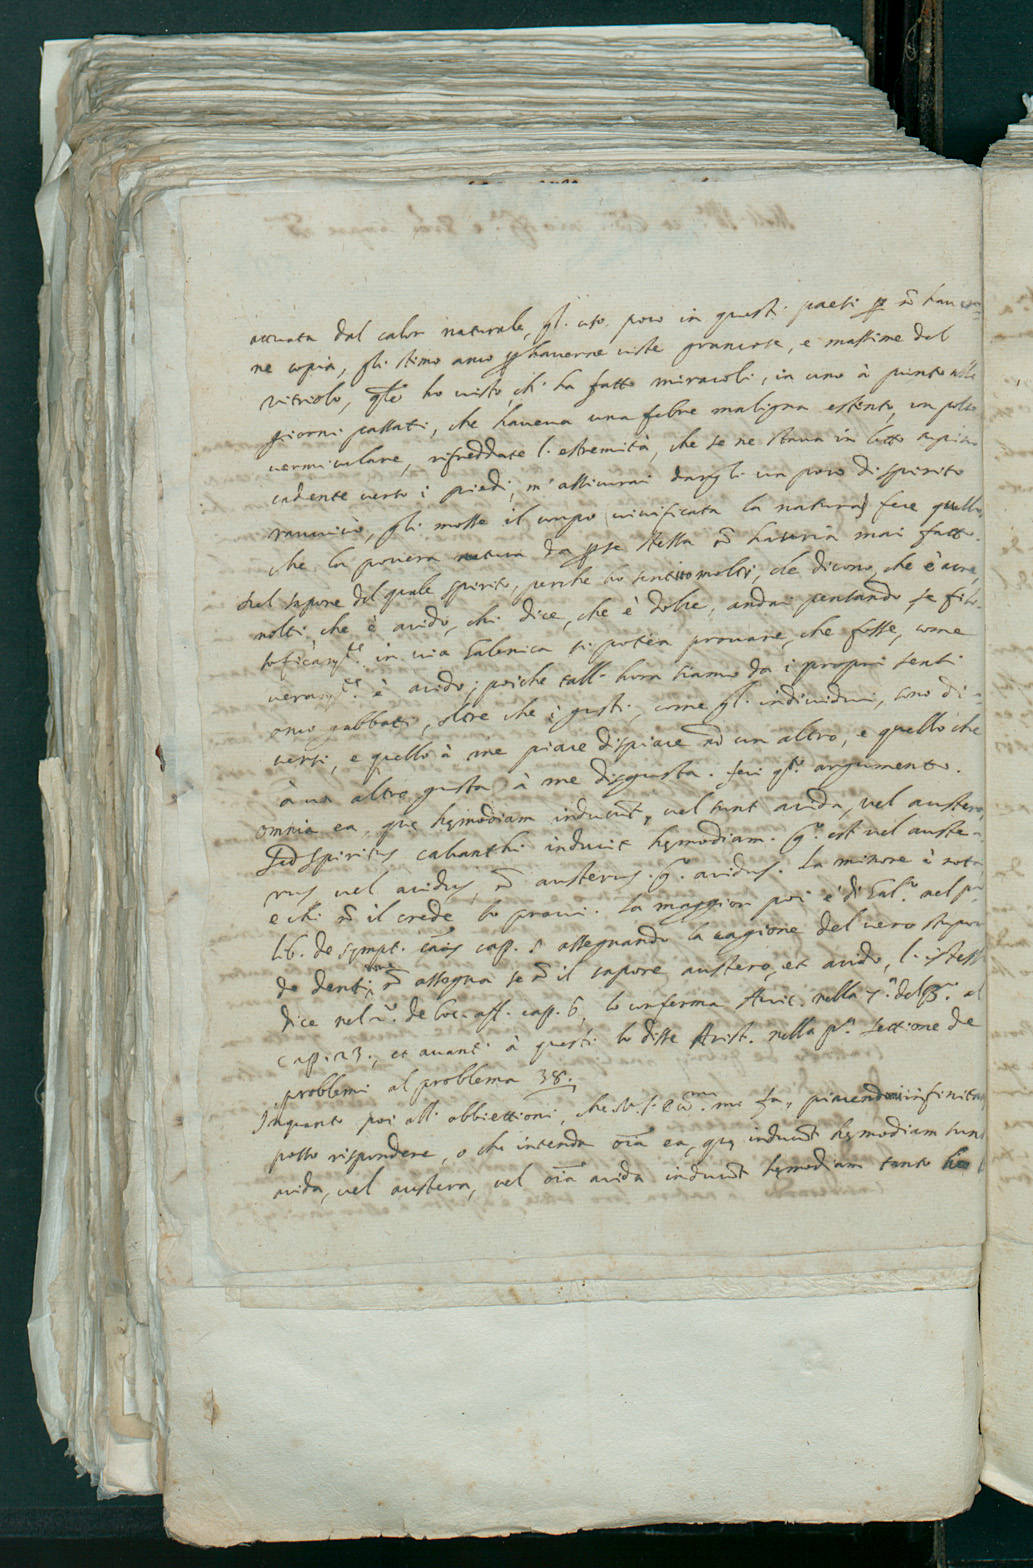 attuata dal calor naturale, gl'uso poco in questi paesi per nõ haver
ne copia, gli stimo anco per haverne viste pruncose, e massime del
vitriolo, qle ho visto ch'ha fatto miracoli, in uno à punto
giorni passati, che haveva una febre maligna estinto, un polso
vermiculare, rifreddate l'estremità, che se ne stava in letto
cadente verso i piedi, m'assicurai dargli un poco di spirito
gli mosse il corpo, vivificata la natura fece quello
che la povera natura da per se stessa nõ haveria mai fatto.
Sul sapore del quale spirito, perche hò sentito molti, che dicono, che è acre,
molti, che è acido, chi dice, che è dolce, andai pensando se filo-
soficamte in via Galenica si poteva provare, che fosse, come
veramte è acido, poiche tall'hora siamo da i proprii sensi
anco gabbati, oltre che i gusti, come gl'individui, sono di-
versi, e quello à me piace dispiace ad un altro, e quello che
à un altro gusta à me disgusta. feci qto argumento.
omnia ea, quæ hęmodiam inducunt, vel sunt acida, vel austera,
sed spiritus calcanthi inducit hęmodiam. go est vel auste-
rus vel acidus, nõ austerus. go. acidus. La minore è nota
e chi nõ il crede lo provi. La maggior poi è di Galo nel po
lib. de sympt. caus cap. 5 assegnando la cagione del vero stupor
de denti, nõ assegna se nõ il sapore austero, et acido, l'istess
dice nel 2o de loc. aff. cap. 6, lo conferma Avic. nella del 3o al
cap. 23, et avanti à questi lo disse Arist. nella pa settione de
problemi al problema 38.
Inquanto poi all'obbiettioni, che V.S. Eccma mi fa, piacendomi infinito
posso rispondere, o ch'intenda oĩa ea, quę inducũt hęmodiam sunt
acida, vel austera, vel oĩa acida inducũt hęmodiam tanto